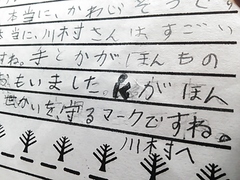 本当に、かわいそうで
本当に、川村さんはすごい
すね。手とかがほんもの
おもいました。Kがほん
世かいを守るマークですね。
川村へ